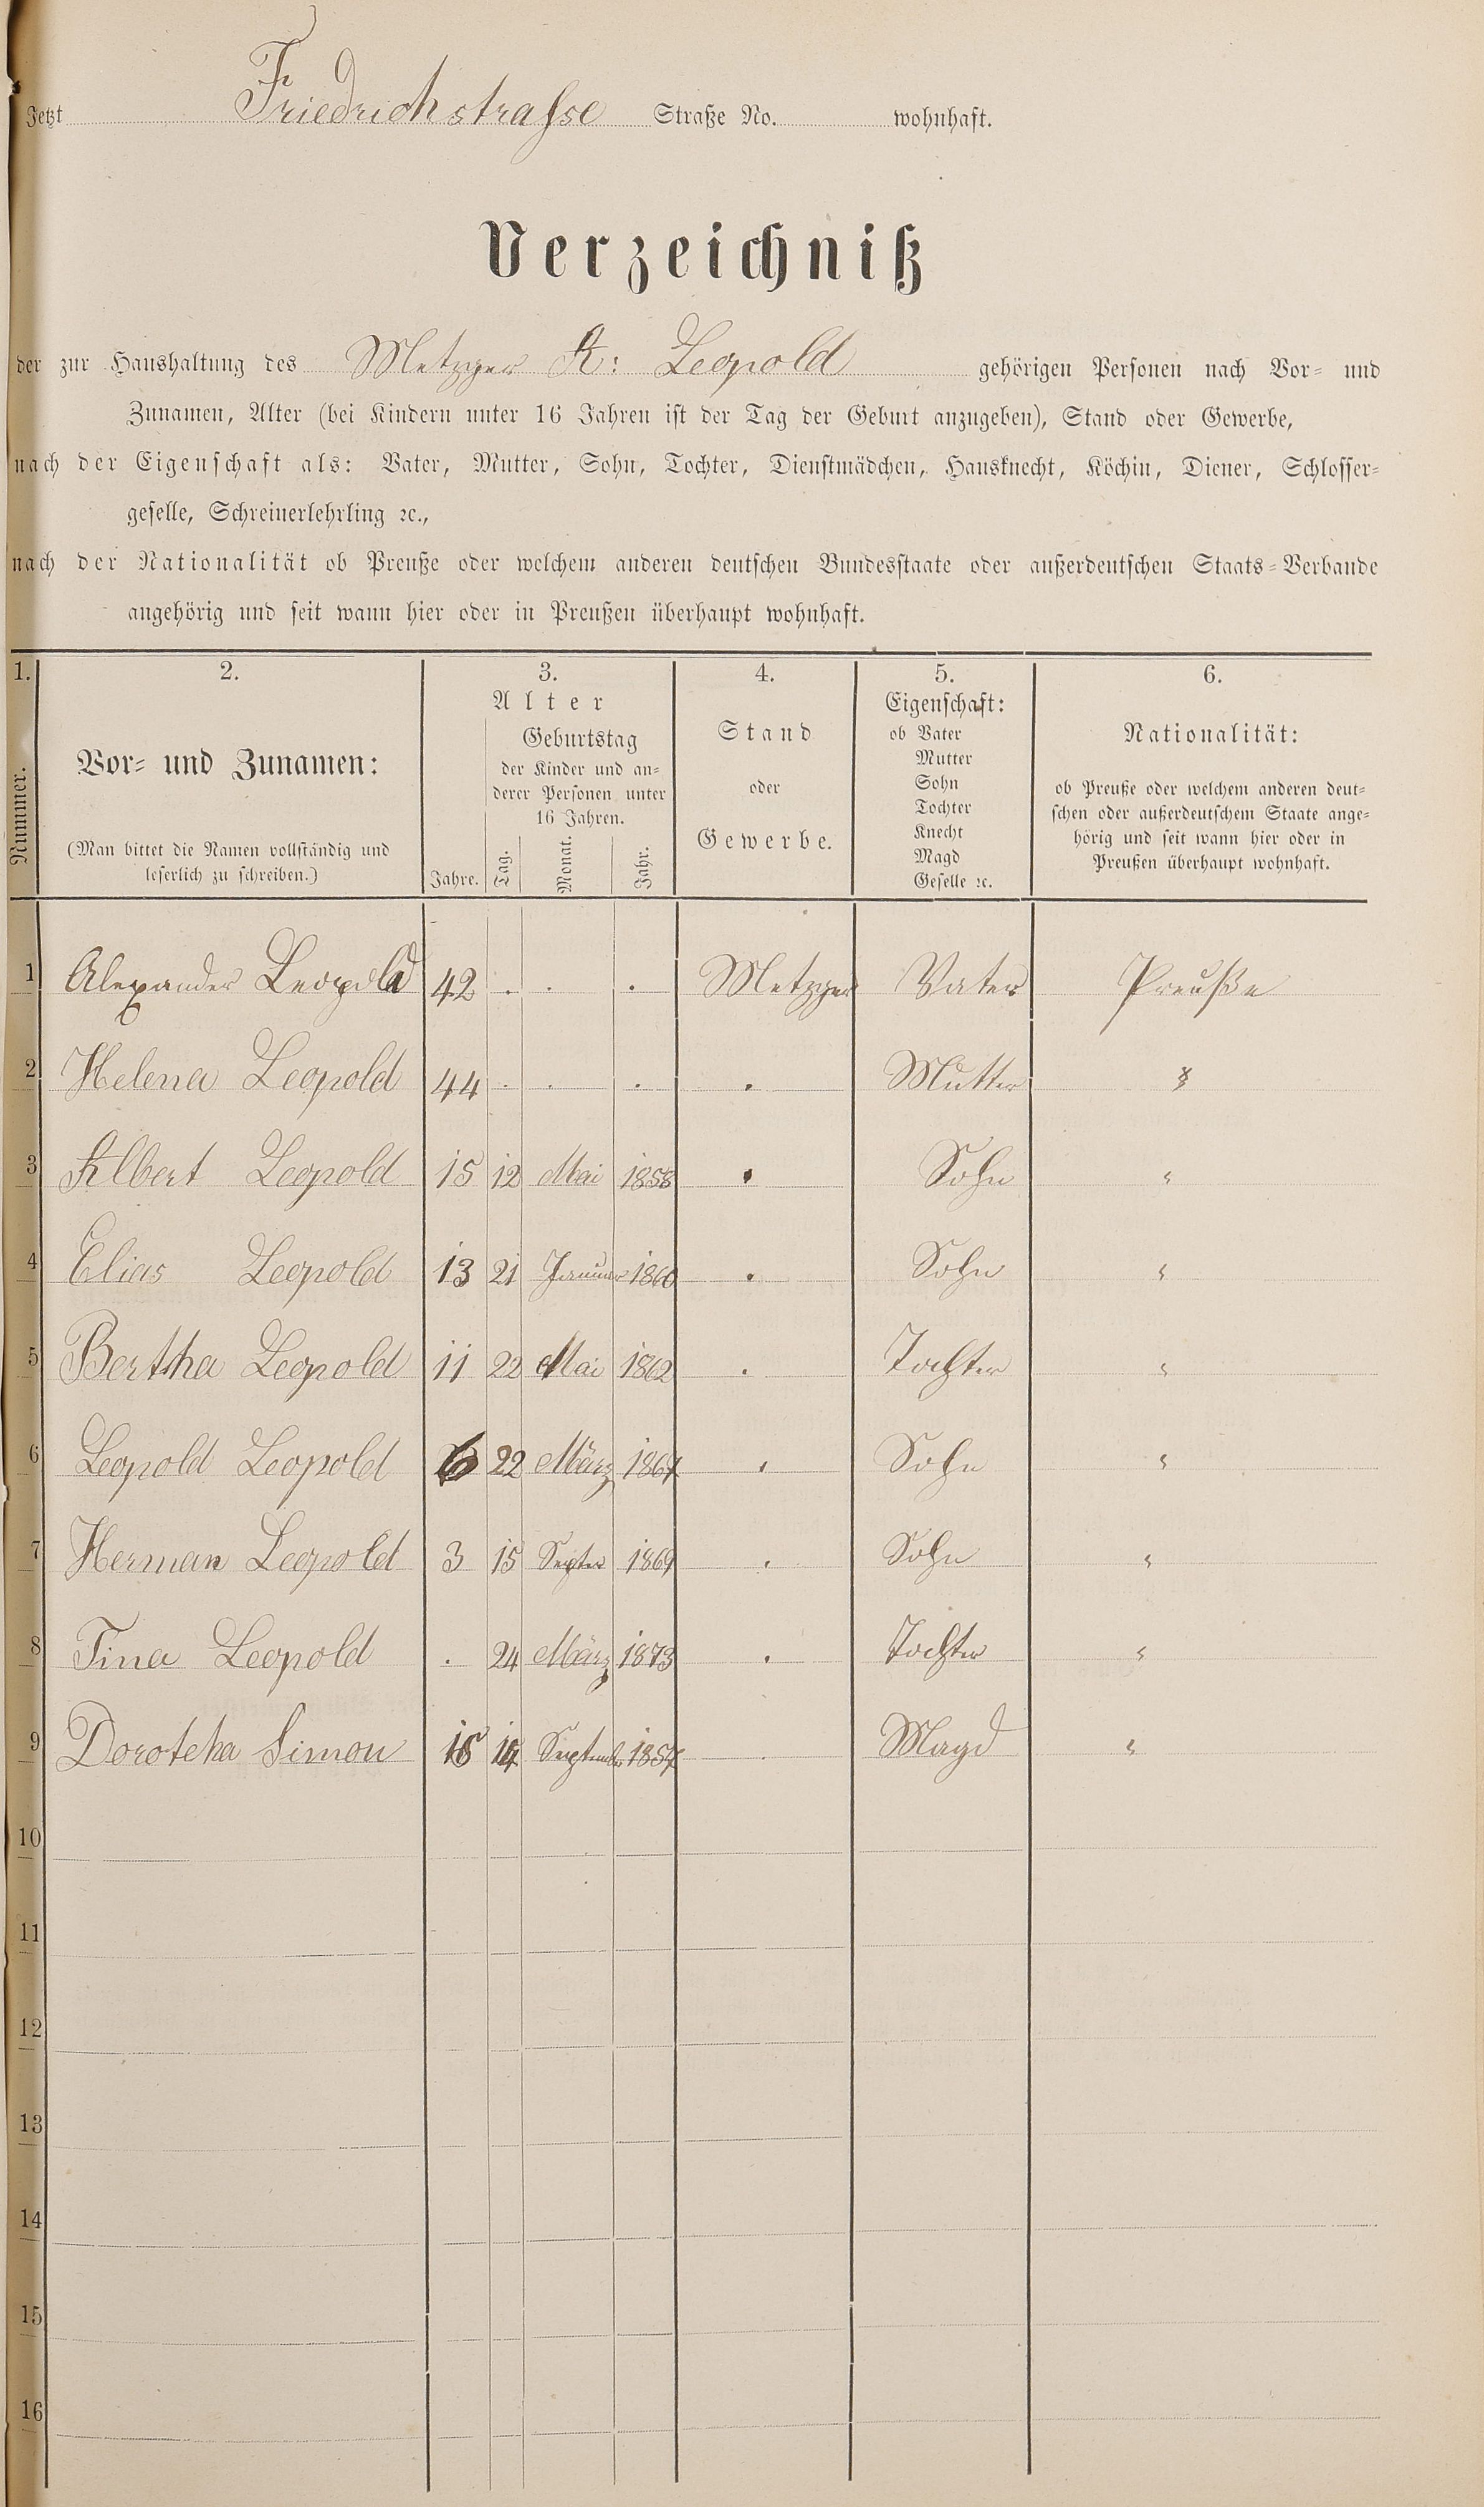 Jetzt Friedrichstraße Straße No. wohnhaft.
Verzeichniß
der zur Haushaltung des Metzger A: Leopold gehörigen Personen nach Vor- und
Zunamen, Alter (bei Kindern unter 16 Jahren ist der Tag der Geburt anzugeben), Stand oder Gewerbe,
nach der Eigenschaft als: Vater, Mutter, Sohn, Tochter, Dienstmädchen, Hausknecht, Köchin, Diener, Schlosser-
geselle, Schreinerlehrling ꝛc.,
nach der Nationalität ob Preuße oder welchem anderen deutschen Bundesstaate oder außerdeutschen Staats-Verbande
angehörig und seit wann hier oder in Preußen überhaupt wohnhaft.
1. 2. 3. 4. 5. 6.
Nummer.
Vor- und Zunamen:
(Man bittet die Namen vollständig und
leserlich zu schreiben.)
Alter
Jahre.
Geburtstag
der Kinder und an-
derer Personen unter
16 Jahren.
Tag. Monat. Jahr.
Stand
oder
Gewerbe.
Eigenschaft:
ob Vater
Mutter
Sohn
Tochter
Knecht
Magd
Geselle ꝛc.
Nationalität:
ob Preuße oder welchem anderen deut-
schen oder außerdeutschem Staate ange-
hörig und seit wann hier oder in
Preußen überhaupt wohnhaft.
1 Alexander Leopold 42 . . . Metzger Vater Preuße
2 Helena Leopold 44 . . . . Mutter "
3 Albert Leopold 15 12 Mai 1858 . Sohn "
4 Elias Leopold 13 21 Januar 1860 . Sohn "
5 Bertha Leopold 11 22 Mai 1862 . Tochter "
6 Leopold Leopold 6 22 März 1867 . Sohn "
7 Herman Leopold 3 15 Septer 1869 . Sohn "
8 Tina Leopold . 24 März 1873 . Tochter "
9 Doroteha Simon 14 September 1857 . Magd "
10
11
12
13
14
15
16